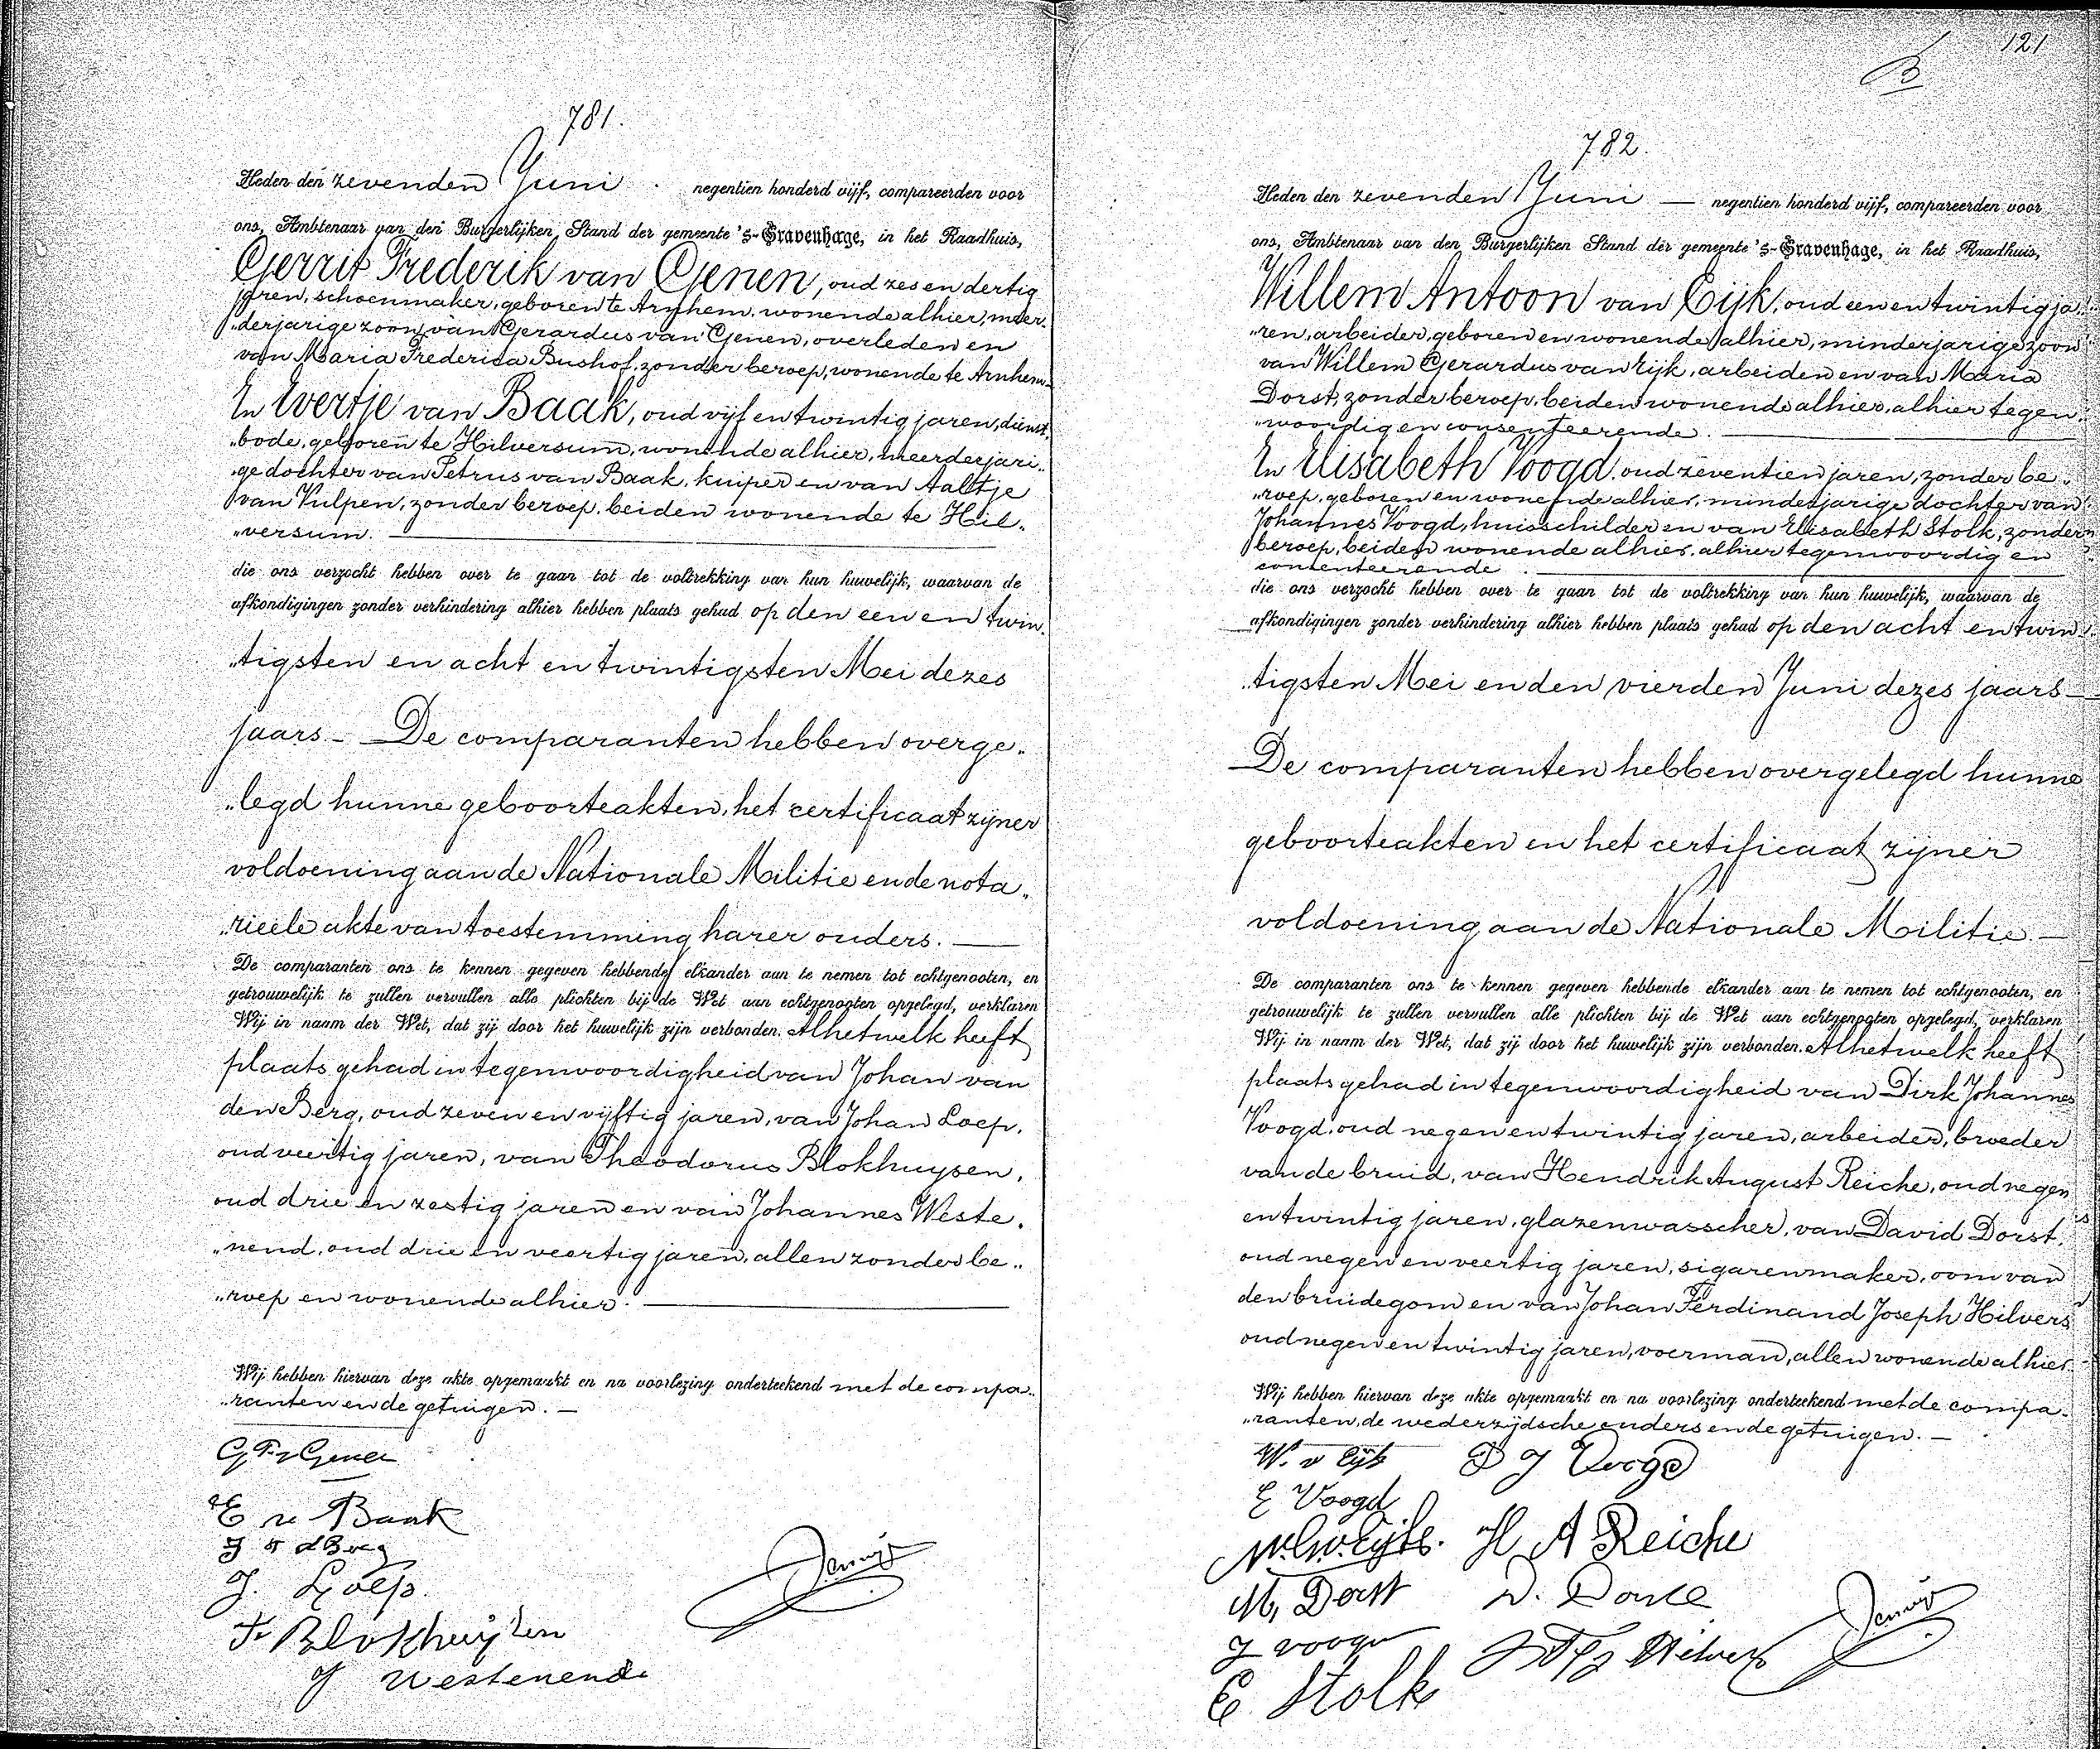 781.
Heden den zevenden Juni negentien honderd vijf, compareerden voor
ons, Ambtenaar van den Burgerlijken Stand der gemeente 's-Gravenhage, in het Raadhuis,
Gerrit Frederik van Genen, oud zes en dertig
jaren, schoenmaker, geboren te Arnhem, wonende alhier, meer„
„derjarige zoon van Gerardus van Genen, overleden en
van Maria Frederica Bushof, zonder beroep, wonende te Arnhem
En Evertje van Baak, oud vijf en twintig jaren, dienst„
„bode, geboren te Hilversum, wonende alhier, meerderjari„
„ge dochter van Petrus van Baak, kuiper en van Aaltje
van Vulpen, zonder beroep, beiden wonende te Hil„
„versum. —
die ons verzocht hebben over te gaan tot de voltrekking van hun huwelijk, waarvan de
afkondigingen zonder verhindering alhier hebben plaats gehad op den een en twin„
„tigsten en acht en twintigsten Mei dezes
jaars. — De comparanten hebben overge„
„legd hunne geboorteakten, het certificaat zijner
voldoening aan de Nationale Militie en de nota„
„rieele akte van toestemming harer ouders. —
De comparanten ons te kennen gegeven hebbende elkander aan te nemen tot echtgenooten, en
getrouwelijk te zullen vervullen alle plichten bij de Wet aan echtgenooten opgelegd, verklaren
Wij in naam der Wet, dat zij door het huwelijk zijn verbonden. Alhetwelk heeft
plaats gehad in tegenwoordigheid van Johan van
den Berg, oud zeven en vijftig jaren, van Johan Loep,
oud veertig jaren, van Theodorus Blokhuysen,
oud drie en zestig jaren en van Johannes Weste„
„nend, oud drie en veertig jaren, allen zonder be„
„roep en wonende alhier. —
Wij hebben hiervan deze akte opgemaakt en na voorlezing onderteekend met de compa„
„ranten en de getuigen. —
G F v Genen
E v Baak
J v d Berg
J. Loep.
Th Blokhuijsen
J Westenende
121
B
782.
Heden den zevenden Juni — negentien honderd vijf, compareerden voor
ons, Ambtenaar van den Burgerlijken Stand der gemeente 's-Gravenhage, in het Raadhuis,
Willem Antoon van Eijk, oud een en twintig ja„
„ren, arbeider, geboren en wonende alhier, minderjarige zoon
van Willem Gerardus van Eijk, arbeider en van Maria
Dorst, zonder beroep, beiden wonende alhier, alhier tegen„
„woordig en consenteerende. —
En Elisabeth Voogd, oud zeventien jaren, zonder be„
„roep, geboren en wonende alhier, minderjarige dochter van
Johannes Voogd, huisschilder en van Elisabeth Stolk, zonder
beroep, beiden wonende alhier, alhier tegenwoordig en
consenteerende. —
die ons verzocht hebben over te gaan tot de voltrekking van hun huwelijk, waarvan de
afkondigingen zonder verhindering alhier hebben plaats gehad op den acht en twin„
„tigsten Mei en den vierden Juni dezes jaars —
De comparanten hebben overgelegd hunne
geboorteakten en het certificaat zijner
voldoening aan de Nationale Militie. —
De comparanten ons te kennen gegeven hebbende elkander aan te nemen tot echtgenooten, en
getrouwelijk te zullen vervullen alle plichten bij de Wet aan echtgenooten opgelegd, verklaren
Wij in naam der Wet, dat zij door het huwelijk zijn verbonden. Alhetwelk heeft
plaats gehad in tegenwoordigheid van Dirk Johannes
Voogd, oud negen en twintig jaren, arbeider, broeder
van de bruid, van Hendrik August Reiche, oud negen
en twintig jaren, glazenwasscher, van David Dorst,
oud negen en veertig jaren, sigarenmaker, oom van
den bruidegom en van Johan Ferdinand Joseph Hilvers
oud negen en twintig jaren, voerman, allen wonende alhier.
Wij hebben hiervan deze akte opgemaakt en na voorlezing onderteekend met de compa„
„ranten, de wederzijdsche ouders en de getuigen. —
W. v Eijk D J Voogd
E Voogd
W. G. v. Eijk. H A Reiche
M, Dorst D. Dorst
J Voogd J F J Hilvers
E Stolk